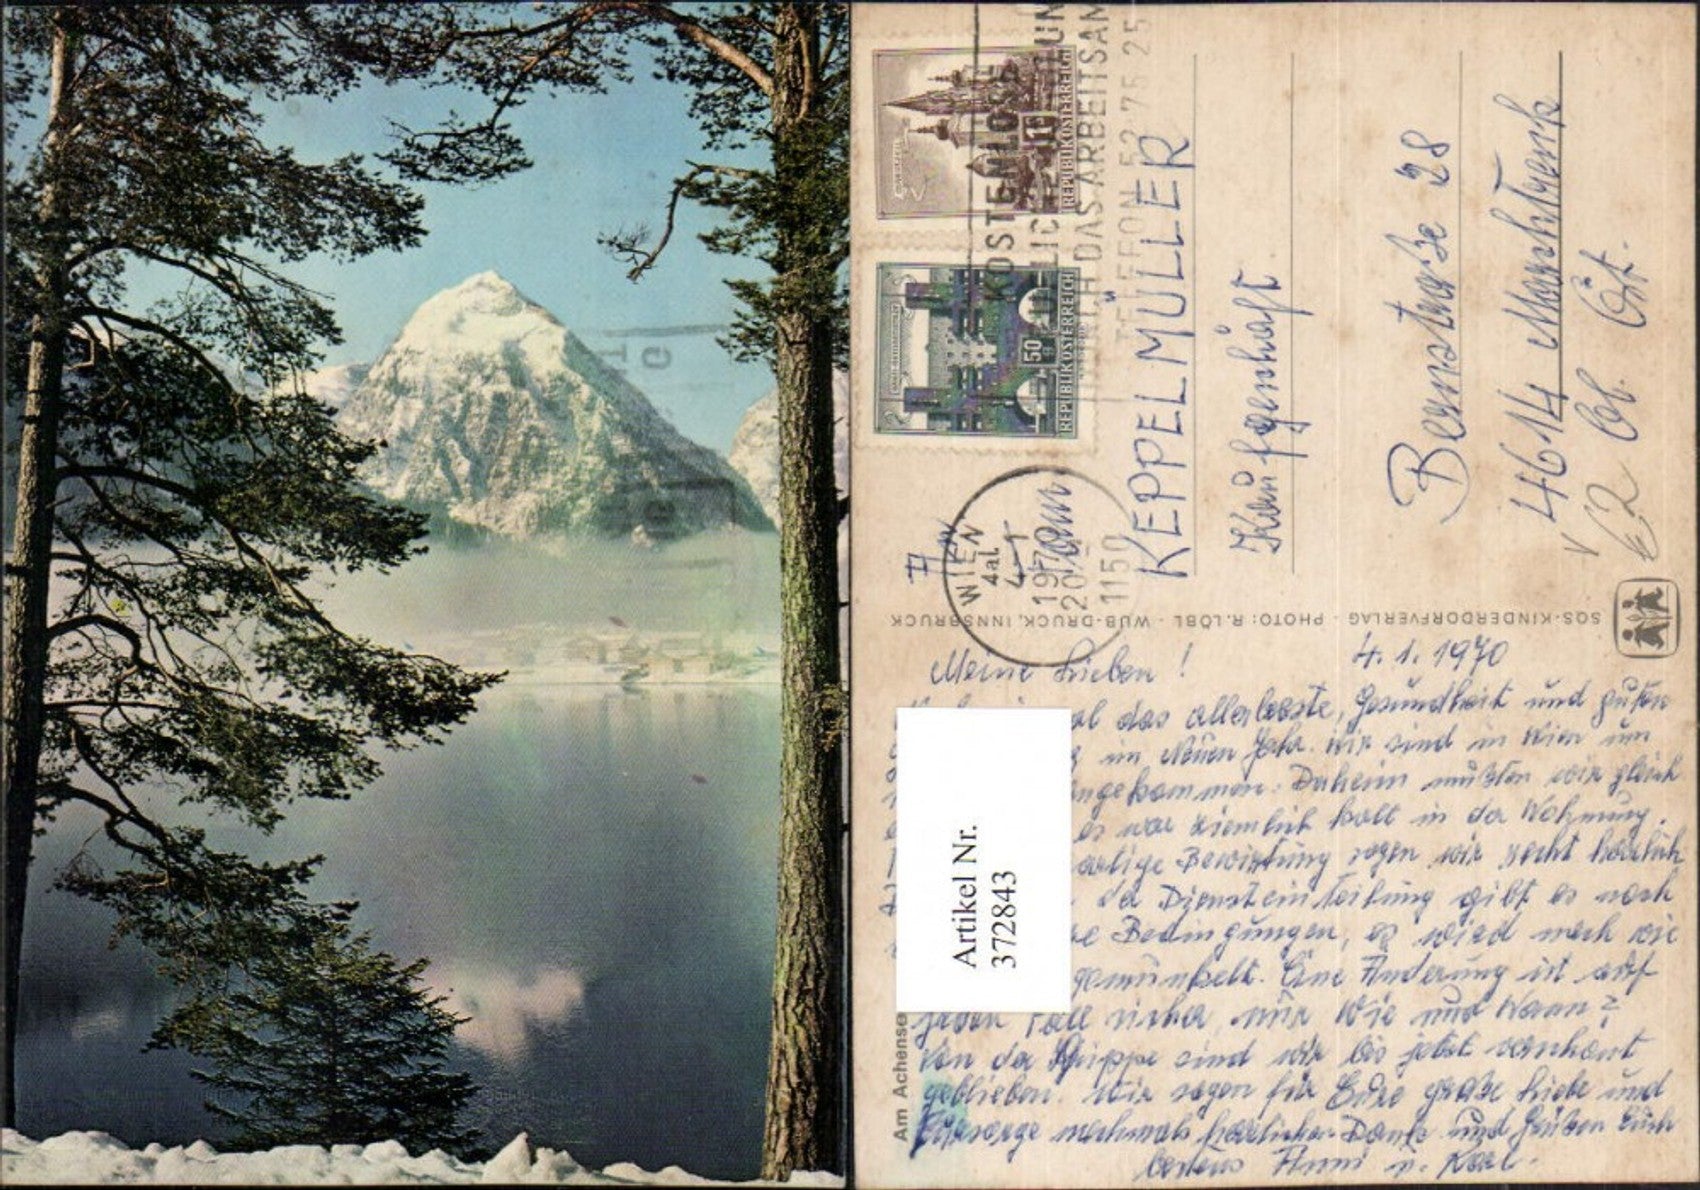 KOSTENLOSE
DAS ARBEITSAM
TELEFON 52 76 25
REPUBLIK ÖSTERREICH
1
REPUBLIK ÖSTERREICH
50
WIEN
4al
1970
20
1150
An
Fam
KEPPELMÜLLER
Kaufgeschäft
Bernstraße 28
4614 Marchtrenk
Ob. Öst.
SOS-KINDERDORFVERLAG · PHOTO: R. LÖBL · WUB-DRUCK, INNSBRUCK
Am Achense
4. 1. 1970
Meine Lieben!
das allerbeste, Gesundheit und guten
im Neuen Jahr. Wir sind in Wien um
angekommen. Daheim mußten wir gleich
es war ziemlich kalt in der Wohnung.
artige Bewirtung sagen wir recht herzlich
der Diensteinteilung gibt es noch
Bedingungen, es wird noch wie
gemunkelt. Eine Änderung ist auf
jeden Fall sicher, nur Wie und Wann?
Von der Grippe sind wir bis jetzt verschont
geblieben. Wir sagen für Eure große Liebe und
Fürsorge nochmals herzlichen Dank und grüßen Euch
bestens Anni u. Karl.
Artikel Nr.
372843